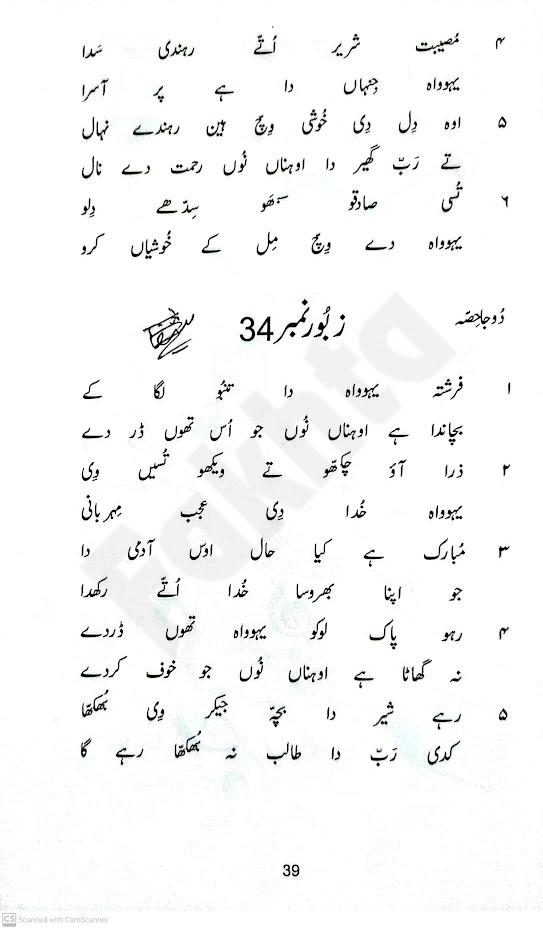 ۴ مُصیبت شریر اُتّے رہندی سَدا
یہوواہ جِنہاں دا ہے پر آسرا
۵ اوہ دِل دِی خُوشی وِچ ہین رہندے نہال
تے رَبّ گھیر دا اوہناں نُوں رحمت دے نال
۶ تُسی صادقو سبھو سِدّھے دِلو
یہوواہ دے وِچ مِل کے خُوشیاں کرو
دُوجا حِصّہ
زبُور نمبر 34
۱ فرشتہ یہوواہ دا تنبُو لگا کے
بچاندا ہے اوہناں نُوں جو اُس تھوں ڈر دے
۲ ذرا آؤ چکھّو تے ویکھو تُسیں وِی
یہوواہ خُدا دِی عجب مِہربانی
۳ مُبارک ہے کیا حال اوسّ آدمی دا
جو اپنا بھروسا خُدا اُتّے رکھدا
۴ رہو پاک لوکو یہوواہ تھوں ڈردے
نہ گھاٹا ہے اوہناں نُوں جو خوف کردے
۵ رہے شیر دا بچّہ جیکر وِی بُھکھّا
کدی رَبّ دا طالب نہ بُھکھّا رہے گا
Fakhta
39
CS Scanned with CamScanner